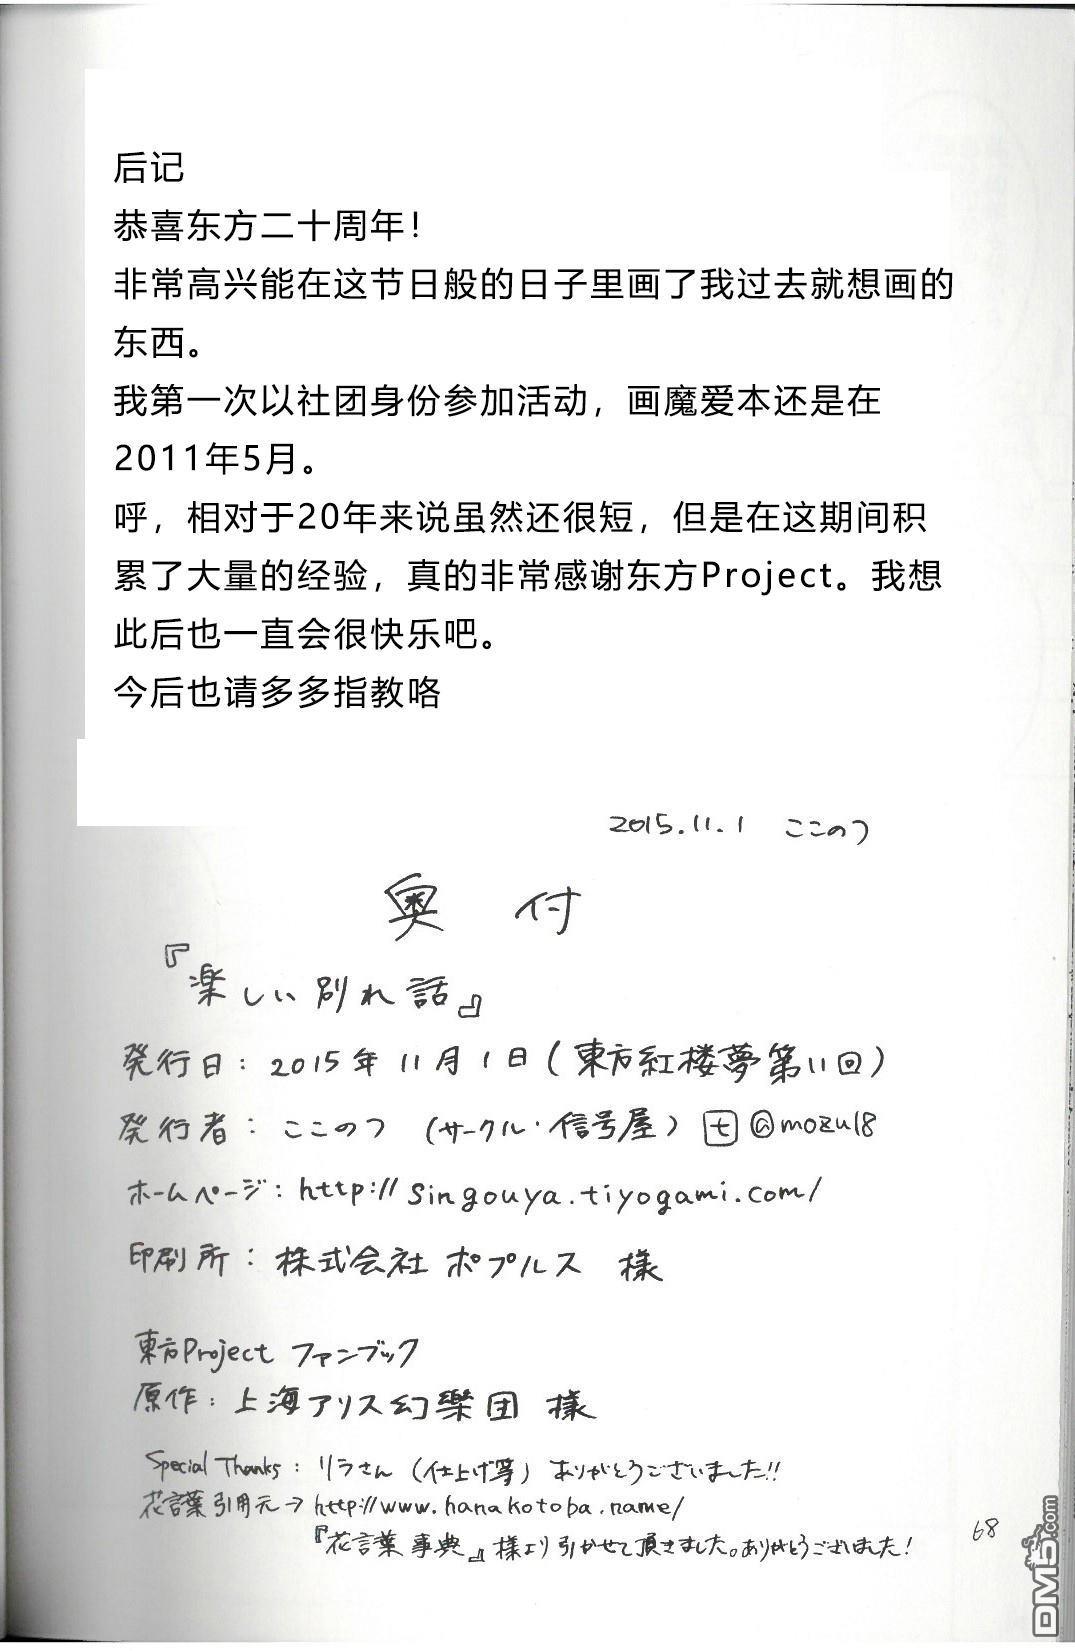 后记
恭喜东方二十周年！
非常高兴能在这节日般的日子里画了我过去就想画的
东西。
我第一次以社团身份参加活动，画魔爱本还是在
2011年5月。
呼，相对于20年来说虽然还很短，但是在这期间积
累了大量的经验，真的非常感谢东方Project。我想
此后也一直会很快乐吧。
今后也请多多指教咯
2015.11.1 ここのつ
奥付
『楽しい別れ話』
発行日：2015年11月1日（東方紅楼夢第11回）
発行者：ここのつ （サークル・信号屋） 七 @mozu18
ホームページ：http://singouya.tiyogami.com/
印刷所：株式会社 ポプルス 様
東方Project ファンブック
原作：上海アリス幻樂団 様
Special Thanks：リラさん（仕上げ等）ありがとうございました!!
花言葉引用元→http://www.hanakotoba.name/
『花言葉事典』様より引かせて頂きました。ありがとうございました！
68
DM5.com